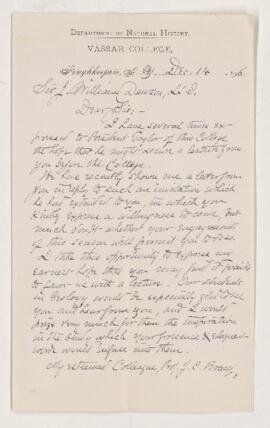 DEPARTMENT OF NATURAL HISTORY.
VASSAR COLLEGE,
Poughkeepsie, N. Y., Dec. 14 86.
Sir J. William Dawson, LL.D.
Dear Sir:-
I have several times ex-
pressed to President Taylor of this College
the hope that he might secure a lecture from
you before the College.
He has recently shown me a letter from
you in reply to such an invitation which
he had extended to you, in which you
kindly express a willingness to come, but
much doubt whether your engagements
of this season will permit you to do so.
I take this opportunity to express my
earnest hope that you may find it possible
to favor us with a lecture. Our students
in Geology would be especially glad to see
you and hear from you, and I would
prize very much for them the inspiration
in the study which your presence & eloquent
words would infuse into them.
My esteemed Colleague, Prof. J. C. Bracq,